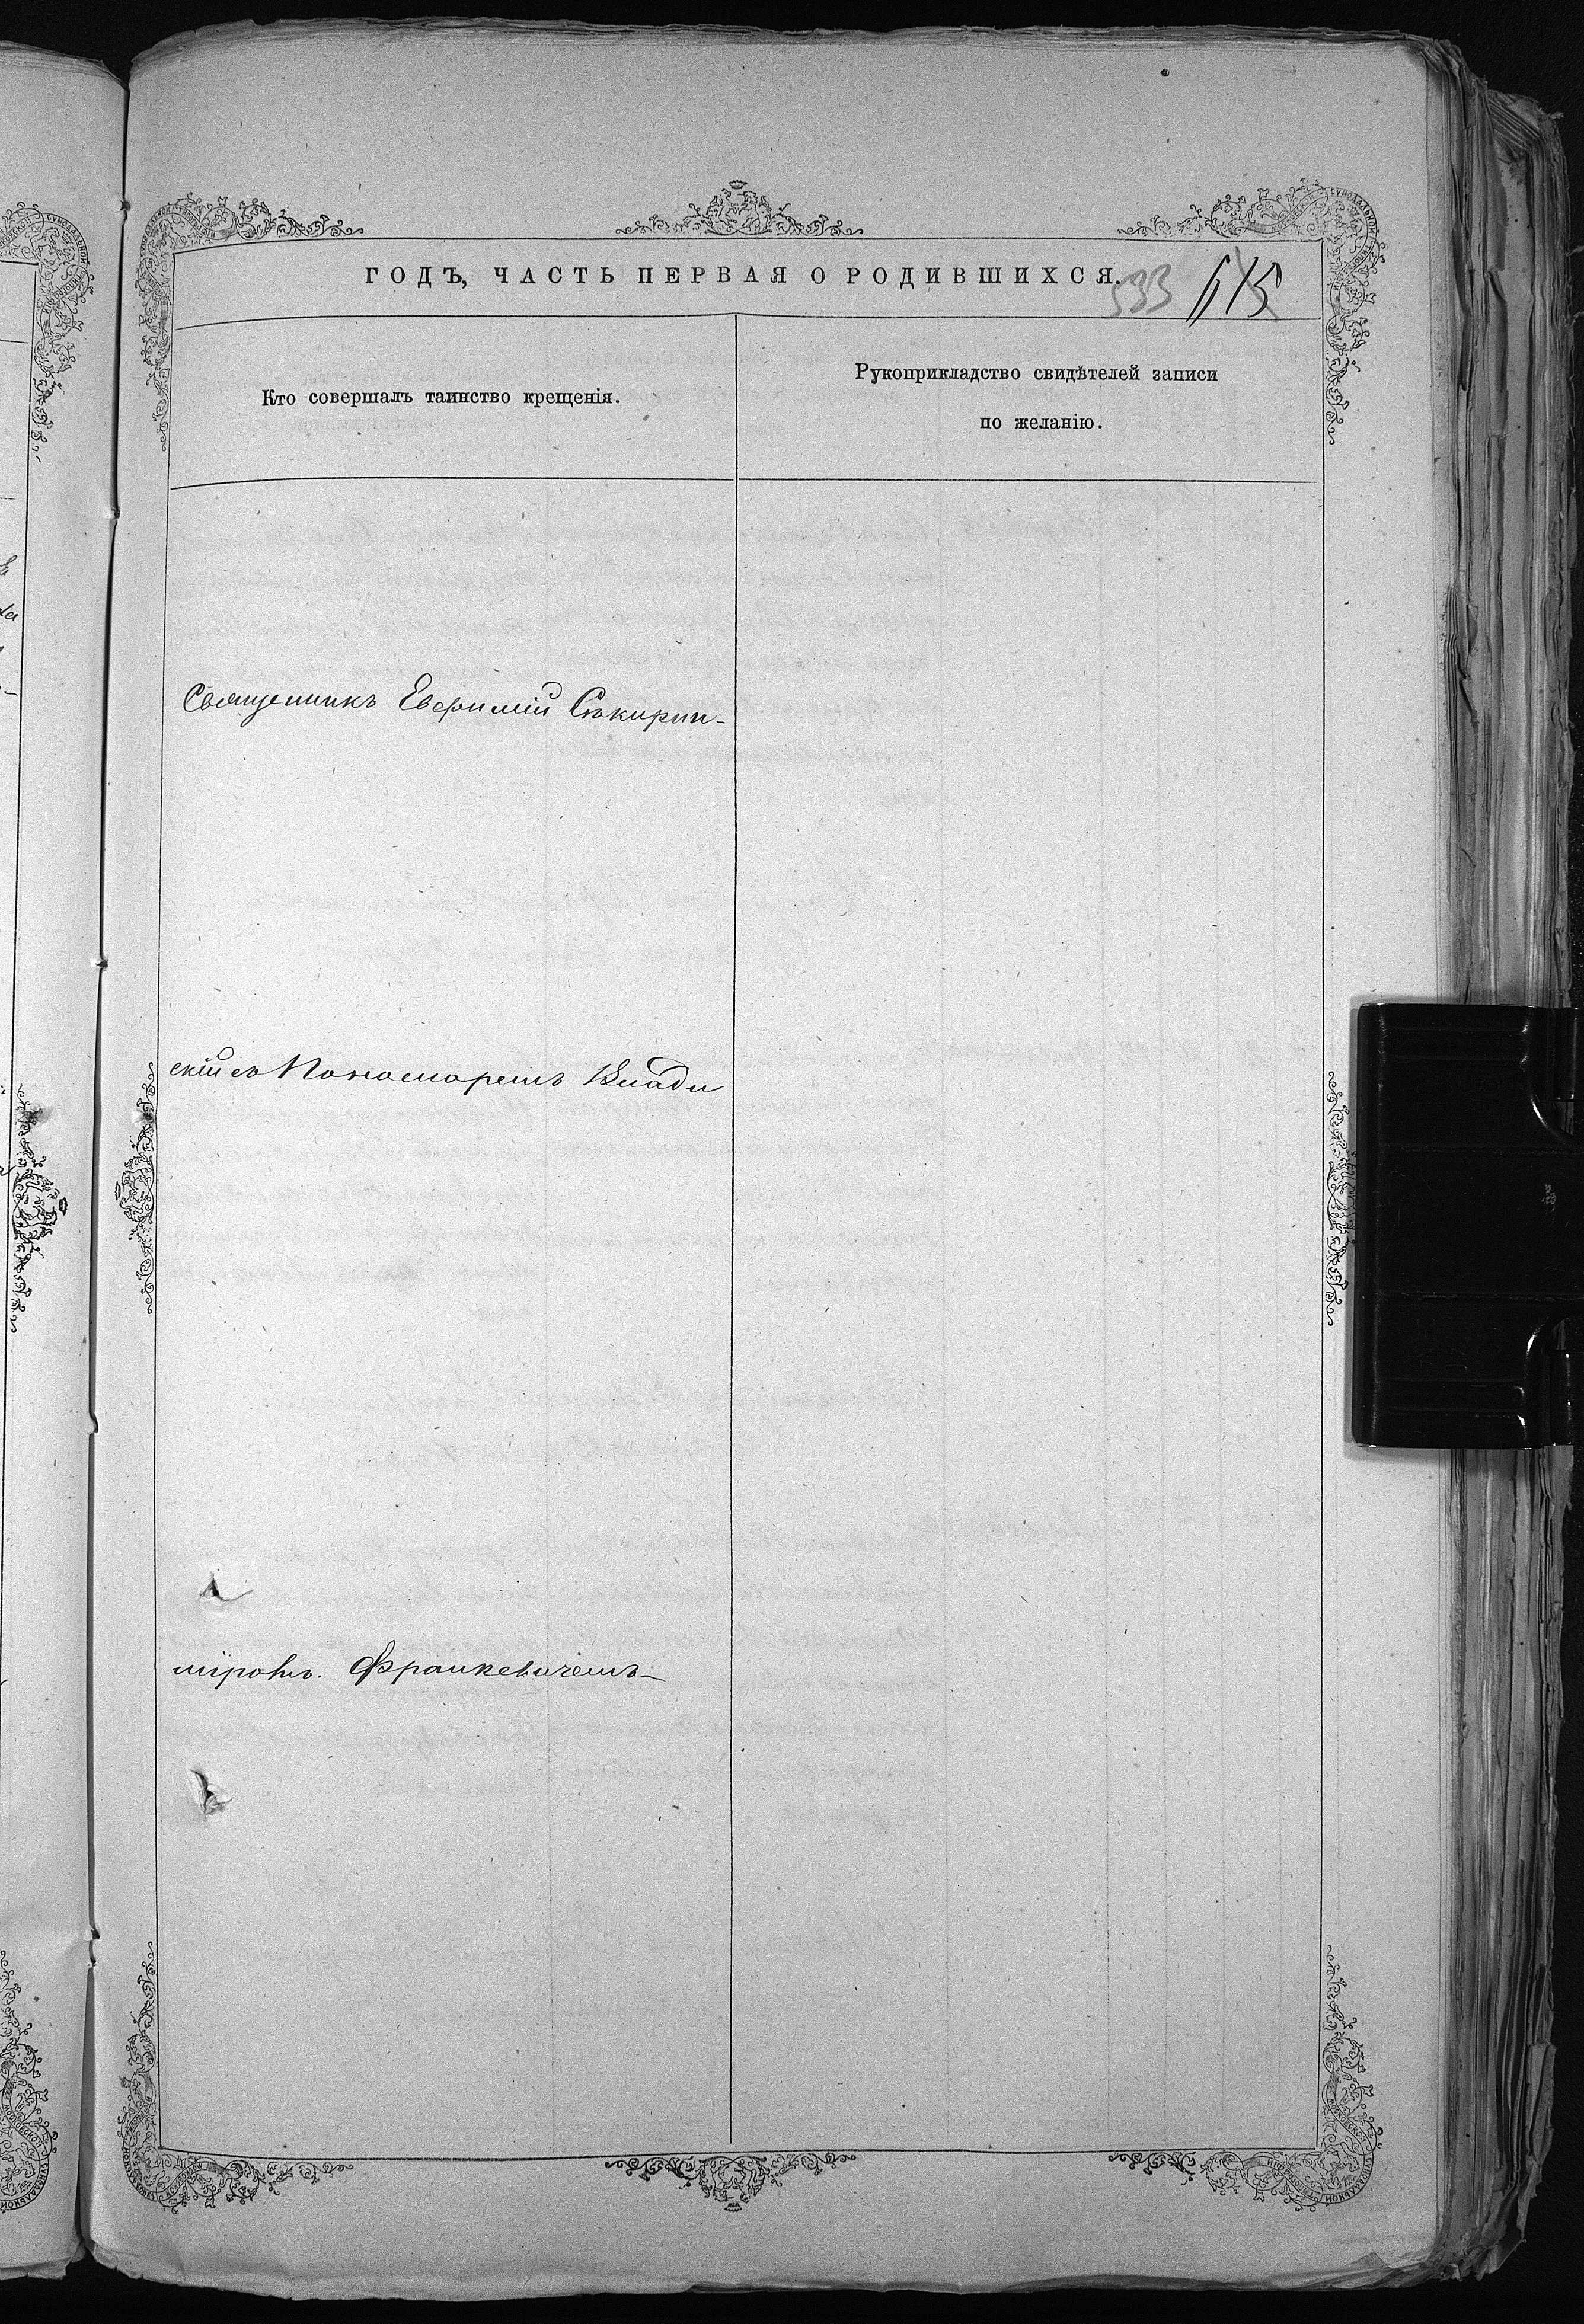 ГОДЪ, ЧАСТЬ ПЕРВАЯ О РОДИВШИХСЯ.
533 615
Кто совершалъ таинство крещенія.
Рукоприкладство свидѣтелей записи
по желанію.
Священникъ Евфимій Сѣкирин-
скій съ Пономаремъ Влади
міромъ. Франкевичемъ-